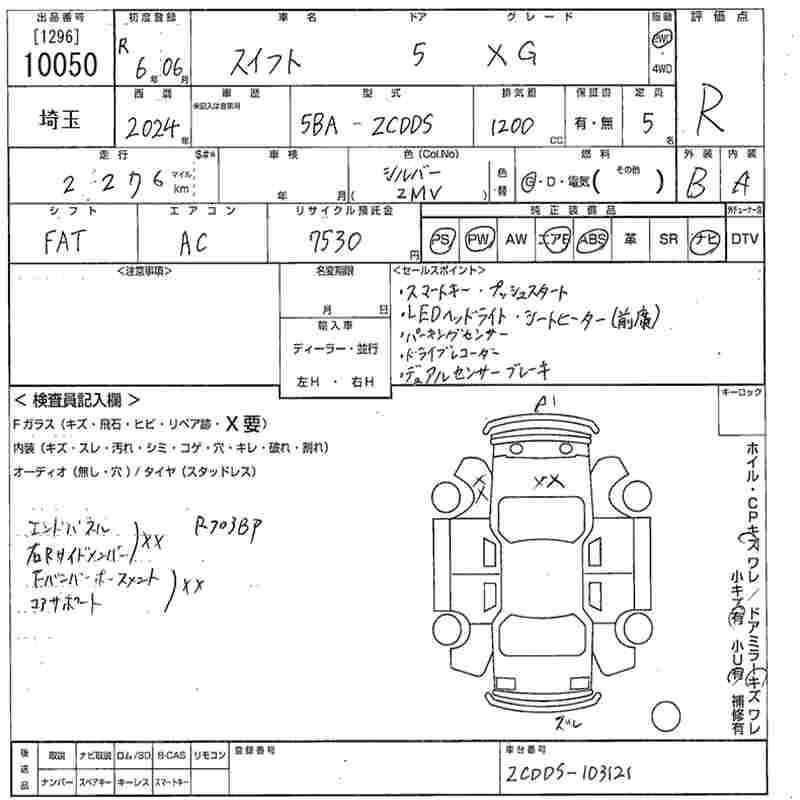 出品番号 初度登録 車名 ドア グレード 駆動 評価点
[1296] 10050 R 6年 06月 スイフト 5 XG 2WD ・ 4WD R
埼玉 西暦 2024年 車歴 未記入は自家用 型式 5BA-ZCDDS 排気量 1200 CC 保証書 有・無 定員 5名
走行 $#* 車検 色(Col.No) 燃料 外装 内装
2276 マイル km 年 月 シルバー ( ZMV ) 色替 G・D・電気( その他 ) B A
シフト エアコン リサイクル預託金 純正装備品 外チューナー含
FAT AC 7530 円 PS PW AW エアB ABS 革 SR ナビ DTV
<注意事項> 名変期限 <セールスポイント>
月 日
輸入車
ディーラー・並行
左H ・ 右H
・スマートキー・プッシュスタート
・LEDヘッドライト・シートヒーター(前席)
・パーキングセンサー
・ドライブレコーダー
・デュアルセンサーブレーキ
キーロック
< 検査員記入欄 >
Fガラス(キズ・飛石・ヒビ・リペア跡・X要)
内装(キズ・スレ・汚れ・シミ・コゲ・穴・キレ・破れ・割れ)
オーディオ(無し・穴)/タイヤ(スタッドレス)
エンドパネル
右Rサイドメンバー )XX
Fバンパーホースメント
コアサポート )XX
XX
XX
ズレ
ホイル・CPキズ ワレ/ドアミラーキズ ワレ
小キズ有 小U有 補修有
後送品 取説 ナビ取説 ロム/SD B-CAS リモコン
ナンバー スペアキー キーレス スマートキー
登録番号
車台番号
ZCDDS-103121